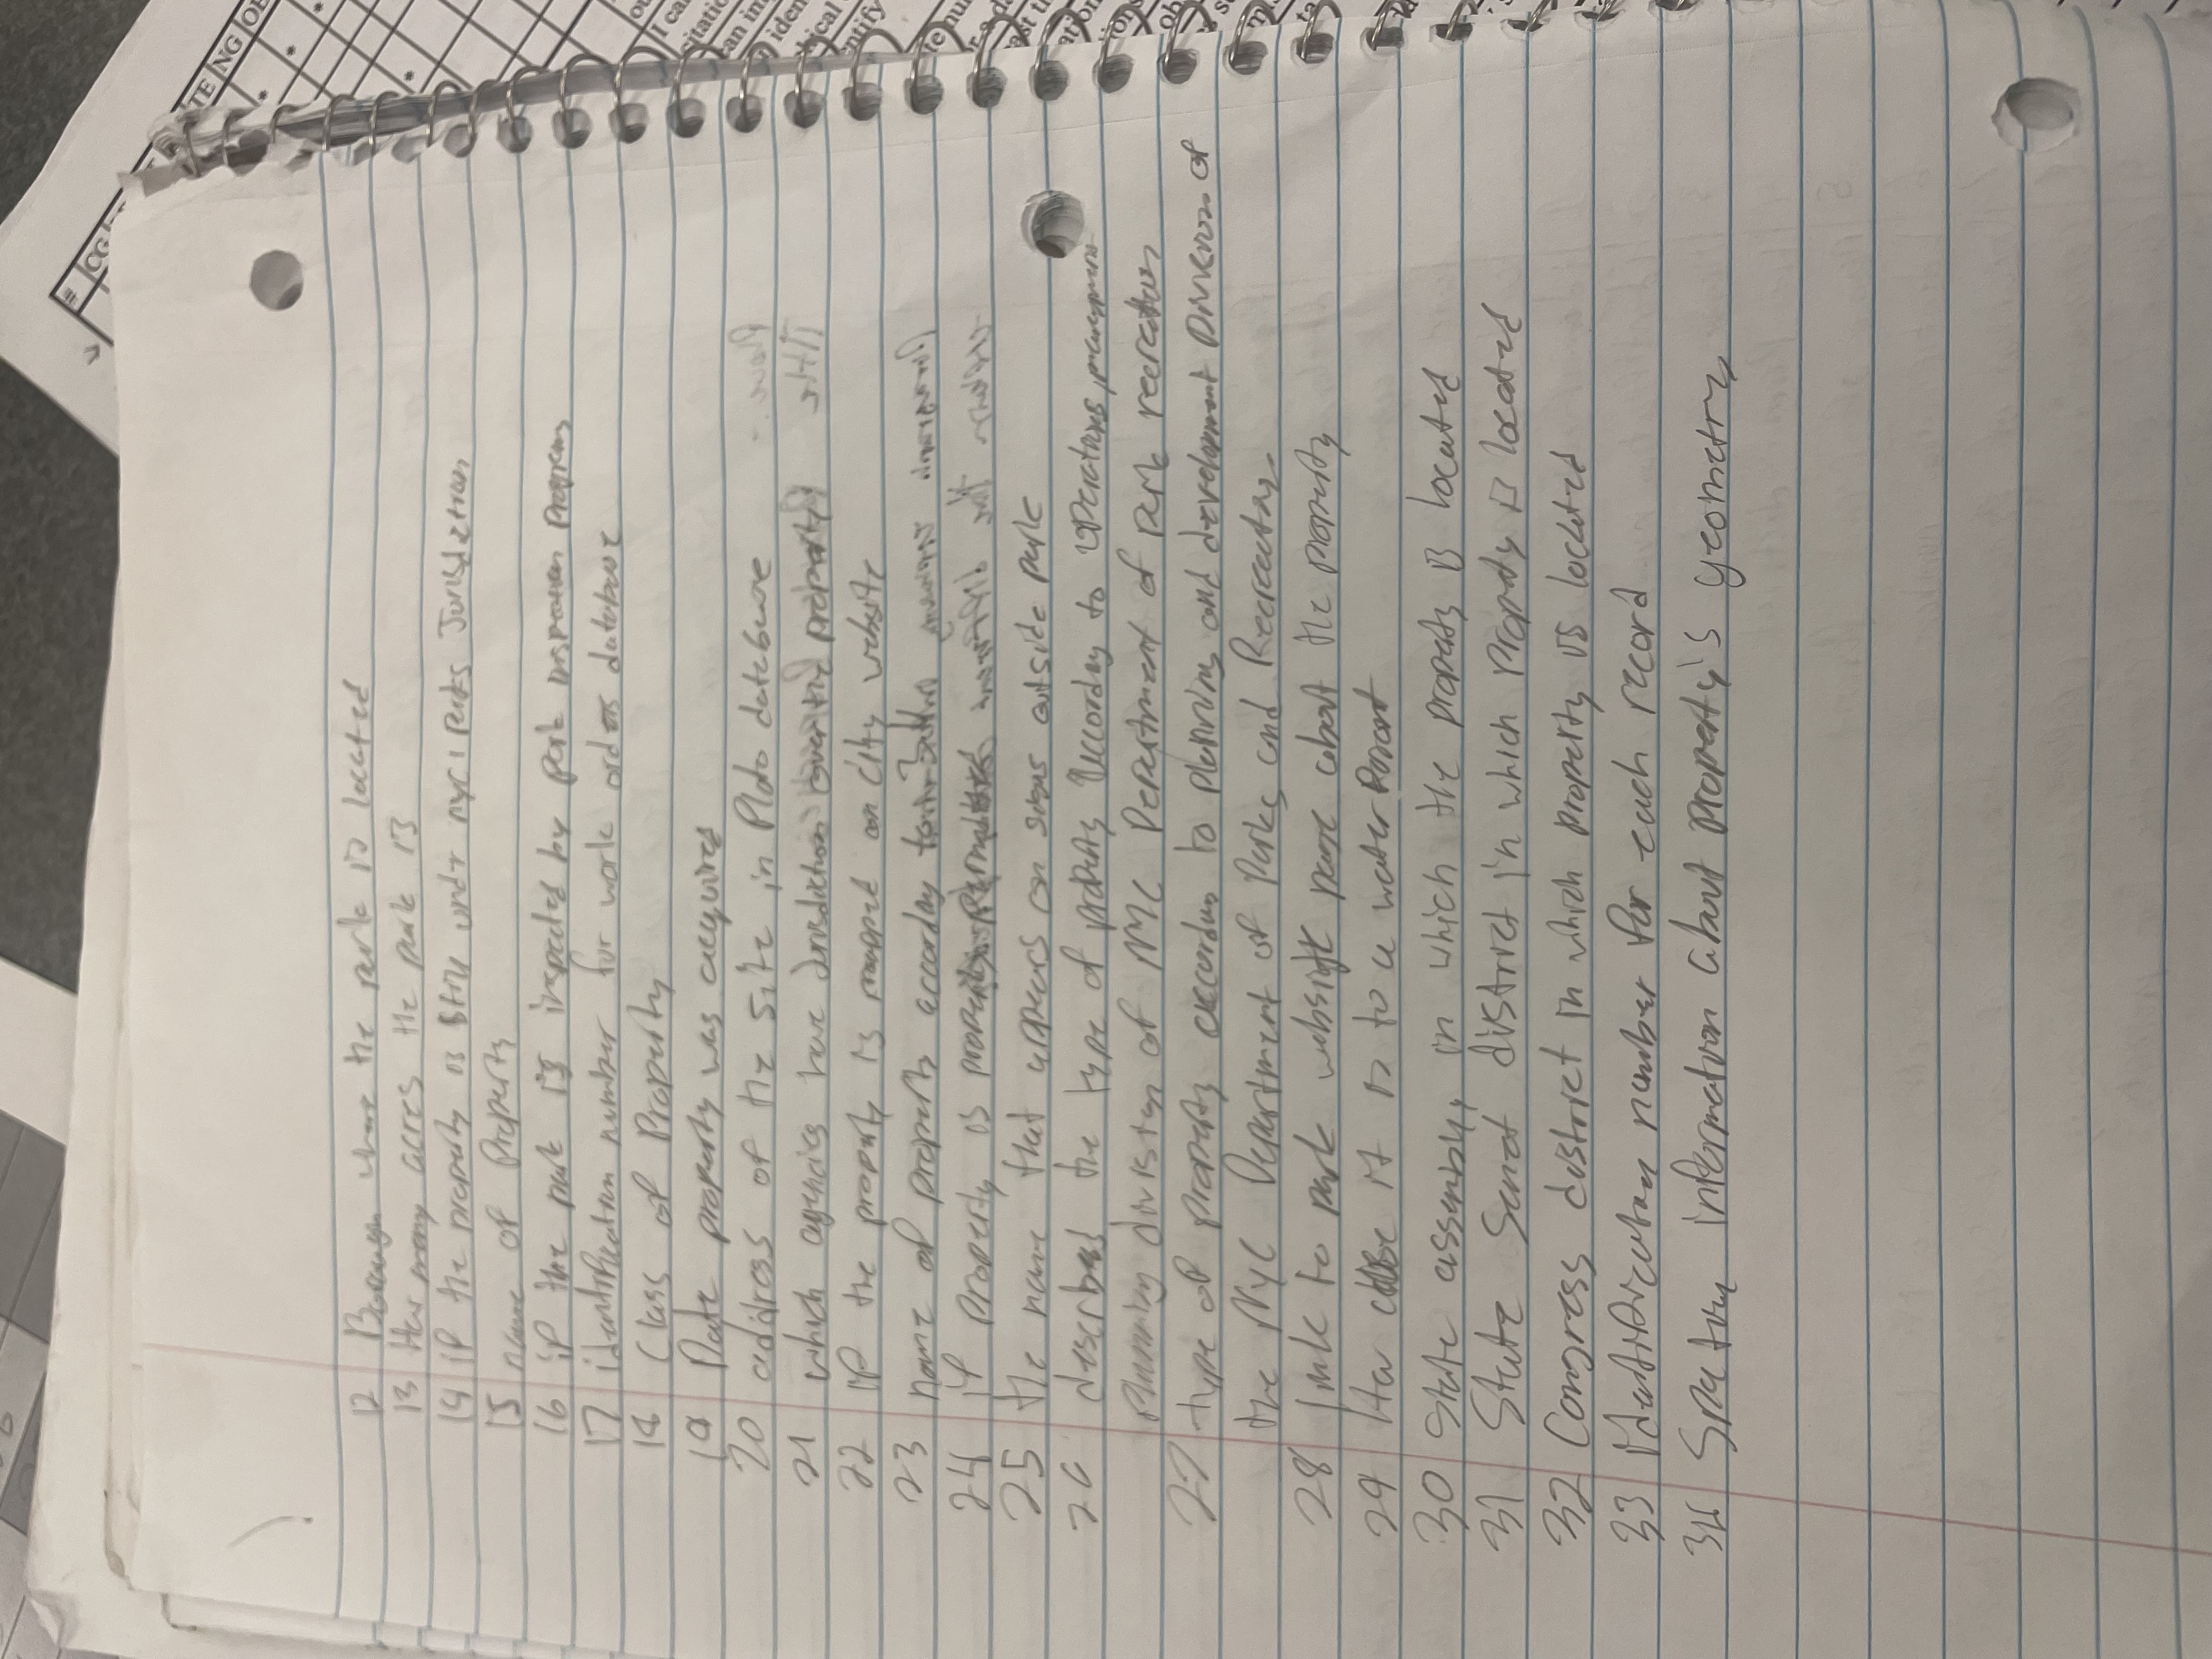 12 Borough where the park is located
13 How many acres the park is
14 if the property is still under nyc Parks Jurisdiction
15 name of Property
16 if the park is inspected by park inspection program
17 identification number for work orders database
18 Class of Property
19 Date property was acquired
20 address of the site in Pluto database
21 which agencies have Jurisdiction over the property
22 if the property is mapped on City website
23 name of property according to
24 if property is property permitted
25 the name that appears on signs outside park
26 described the type of property according to operations,
planning division of NYC Department of park recreation
27 type of property according to planning and development Division of
the NYC Department of Parks and Recreation
28 link to park website page about the property
29 How close it is to a water
30 State assembly, in which the property is located
31 State Senat district in which Property is located
32 Congress district in which property is located
33 identification number for each record
34 information about property's geometry
# CG
TE NG OE
I ca
can im
iden
ntify